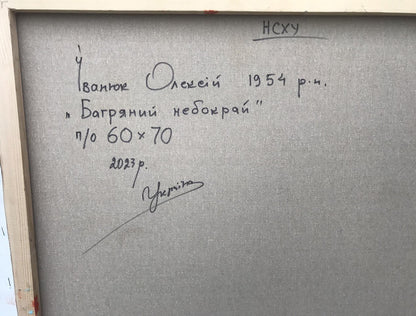 НСХУ
Іванюк Олексій 1954 р.н.
„Багряний небокрай"
п/о 60×70
2023 р.
Україна